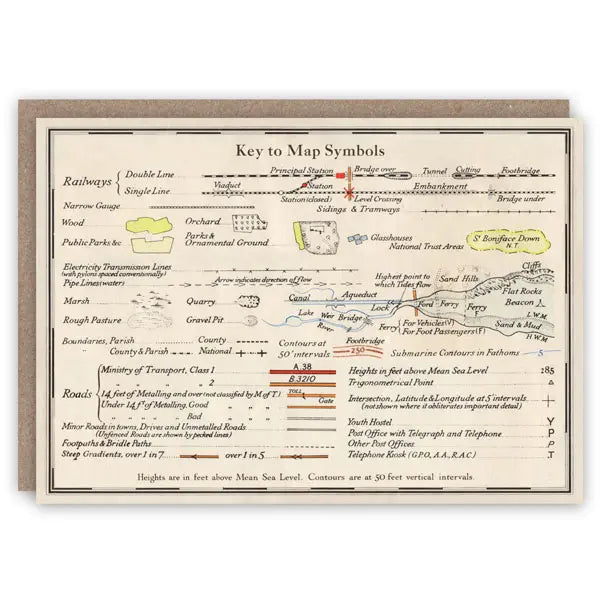 Key to Map Symbols
Principal Station Bridge over Tunnel Cutting Footbridge
Railways { Double Line
Single Line Viaduct Station Embankment
Station (closed) Level Crossing Bridge under
Narrow Gauge Sidings & Tramways
Wood Orchard Glasshouses St Boniface Down
N.T.
Public Parks &c Parks & Ornamental Ground National Trust Areas
Electricity Transmission Lines
(with pylons spaced conventionally)
Pipe Lines (water) Arrow indicates direction of flow
Highest point to which Tides flow Sand Hills Cliffs
Flat Rocks
Marsh Quarry Canal Aqueduct Lock Ford Ferry Ferry Beacon
L.W.M.
Rough Pasture Gravel Pit Lake Weir Bridge River Ferry { For Vehicles (V) For Foot Passengers (F) Sand & Mud
H.W.M.
Boundaries, Parish County
County & Parish National
Contours at 50' intervals Footbridge 250 Submarine Contours in Fathoms 5
Roads { Ministry of Transport, Class 1 A.38
" " " 2 B.3210
14 feet of Metalling and over (not classified by M of T.) TOLL Gate
Under 14 ft of Metalling, Good
" " " " Bad
Minor Roads in towns, Drives and Unmetalled Roads
(Unfenced Roads are shown by pecked lines)
Footpaths & Bridle Paths
Steep Gradients, over 1 in 7 over 1 in 5
Heights in feet above Mean Sea Level 285
Trigonometrical Point
Intersection, Latitude & Longitude at 5' intervals
(not shown where it obliterates important detail)
Youth Hostel Y
Post Office with Telegraph and Telephone P
Other Post Offices P
Telephone Kiosk (G.P.O, A.A, R.A.C) T
Heights are in feet above Mean Sea Level. Contours are at 50 feet vertical intervals.